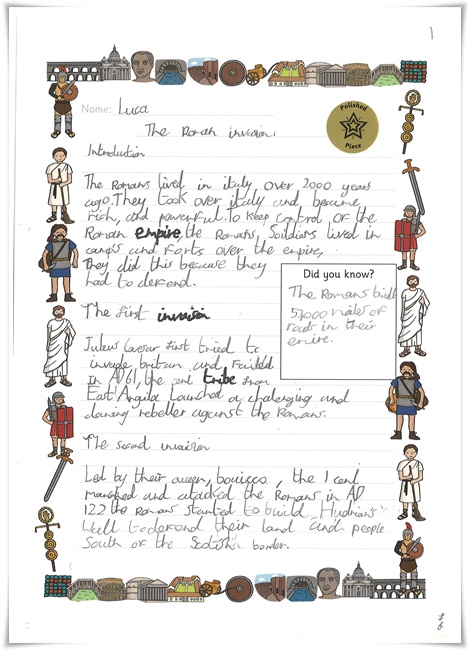 1
Name: Luca
Polished
Piece
The Roman invasion.
Introduction
The Romans lived in italy over 2000 years
ago. They took over italy and became
rich, and powerful. To keep control of the
Roman empire, the Romans, Soildiers lived in
camps and Forts over the empire,
They did this because they
had to defend.
Did you know?
The Romans build
53,000 miles of
roads in their
emire.
The First invasion
Julews Caesar first tried to
invade britain and failed
In AD 61, the cent tribe from
East Angila Launched a chalenging and
daring rebeller against the Romans.
The second invasion
Led by their queen, bouicca, the I cent
marched and attacked the Romans in AD
122 the Romans started to build Hudrians
Wall to defend their land and people
South of the Scotish border.